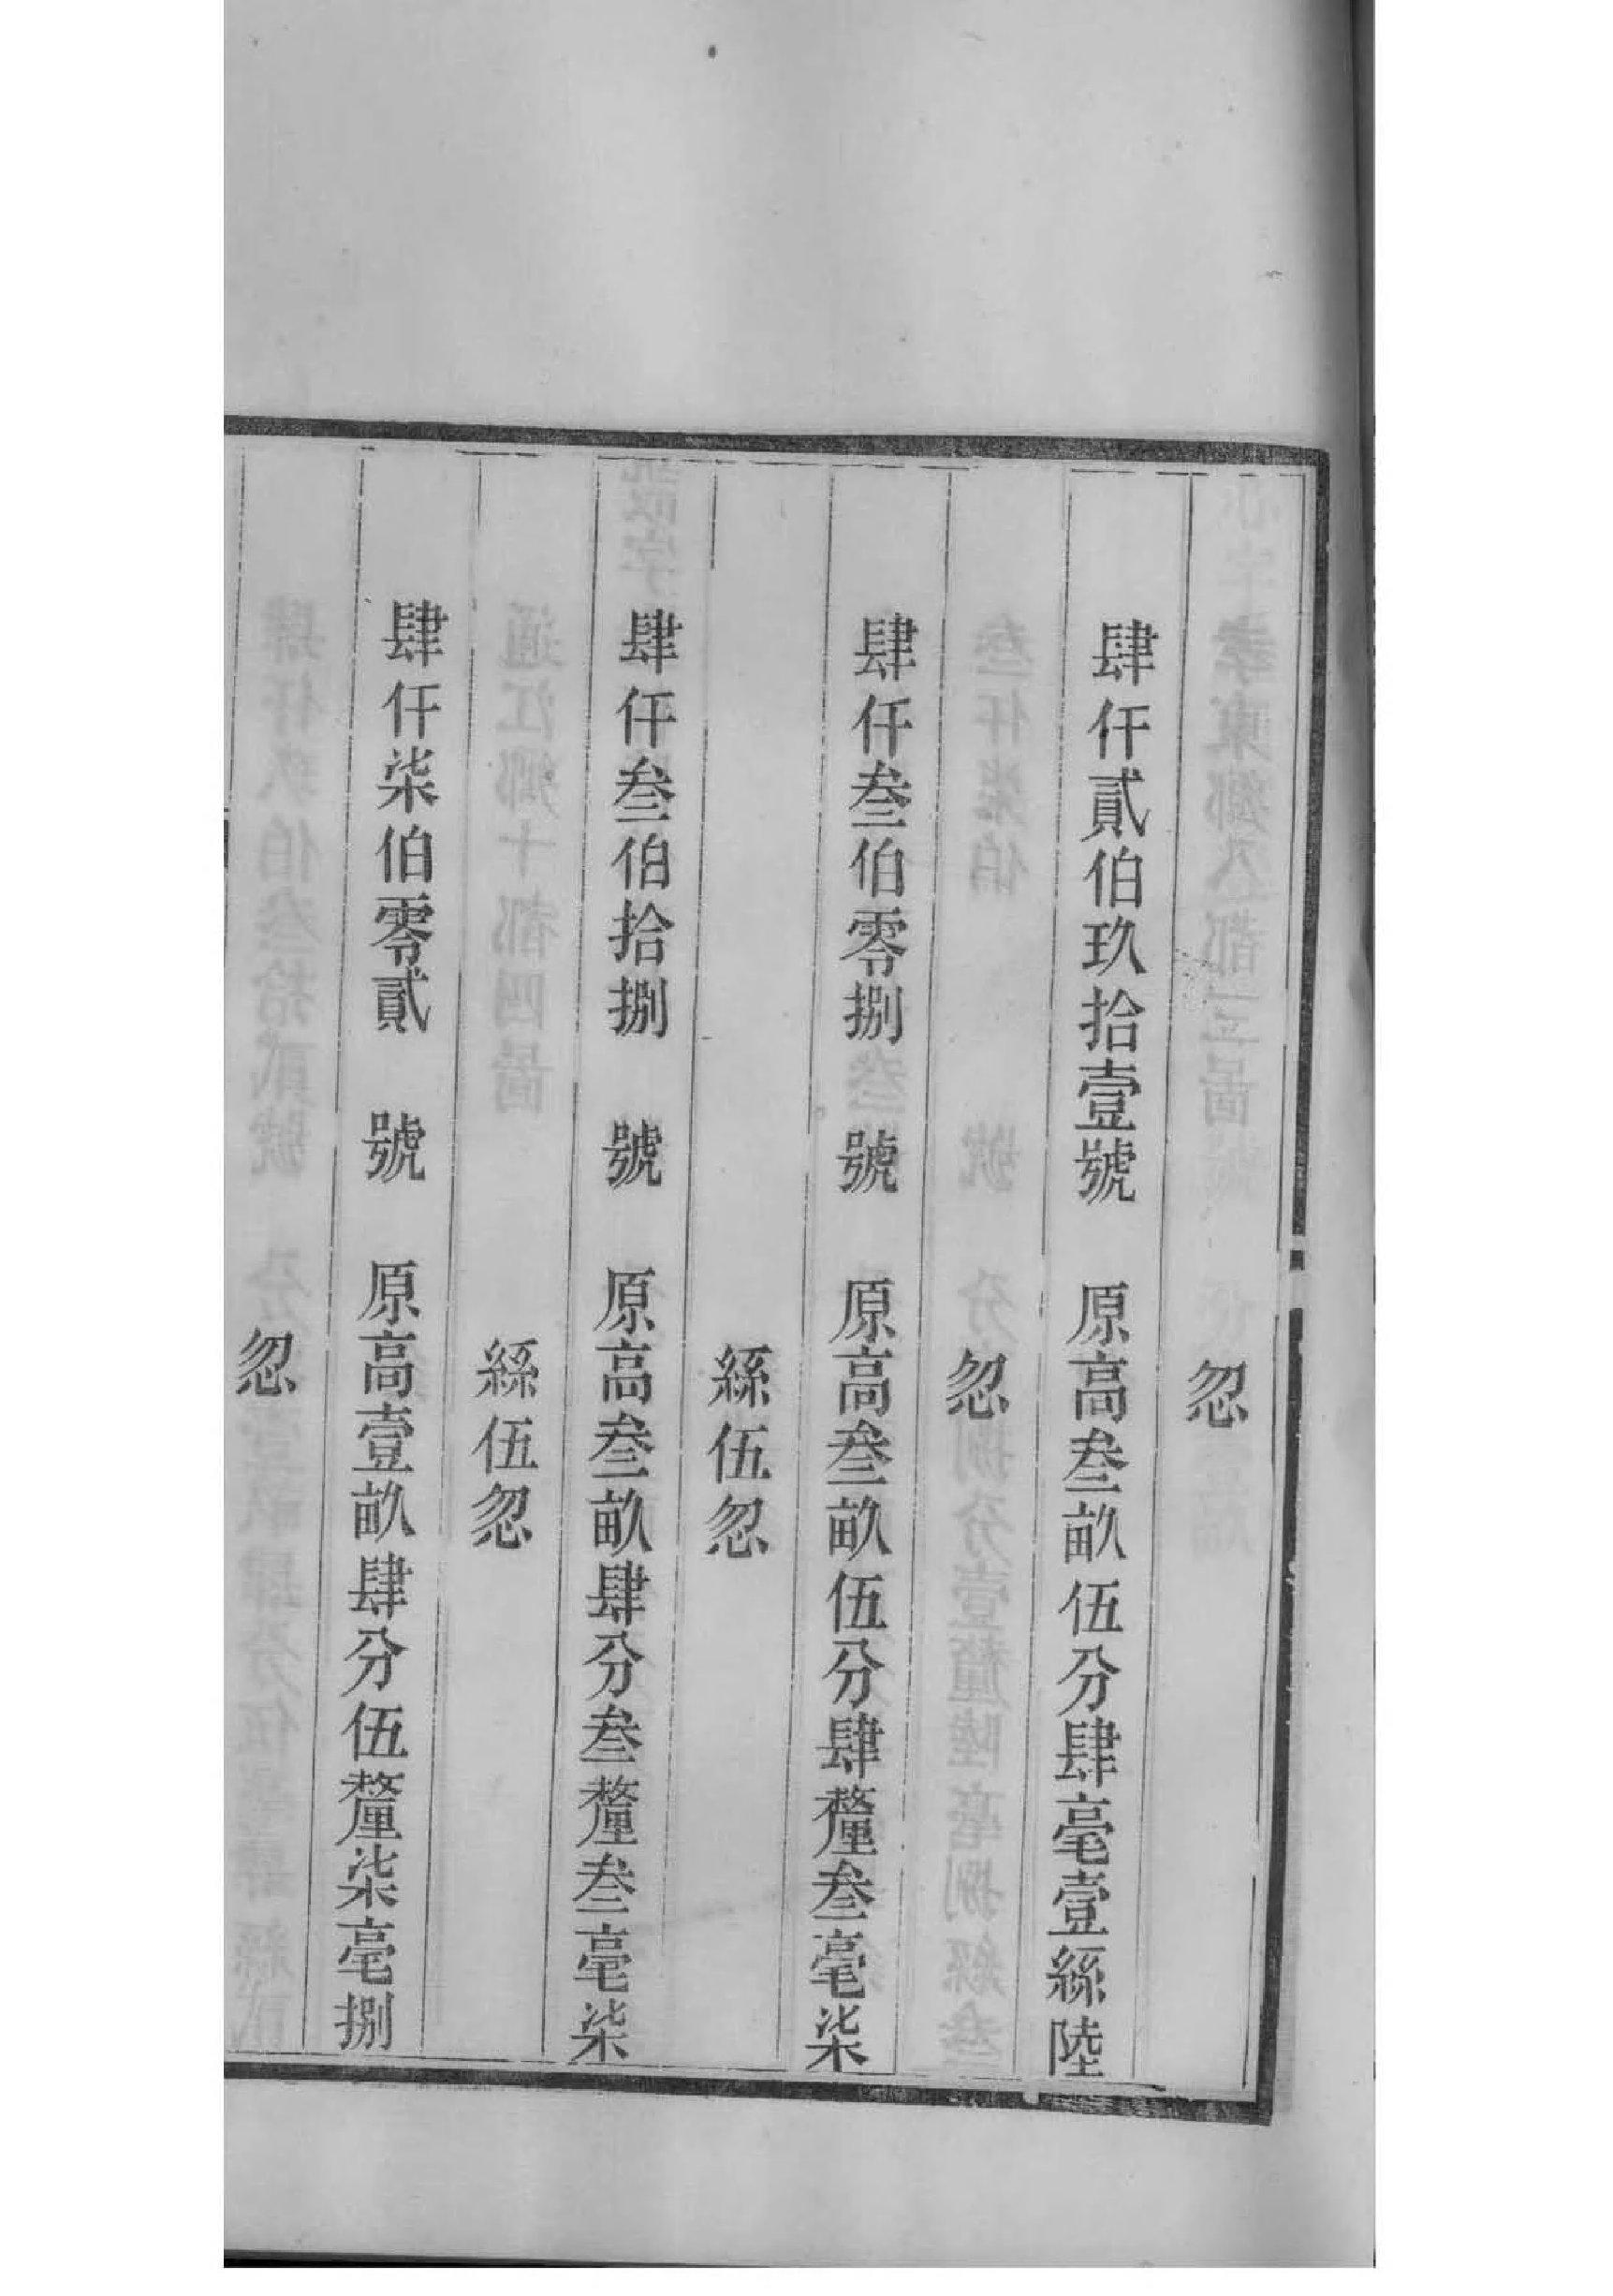 忽
肆仟貳伯玖拾壹號　原高叁畝伍分肆毫壹絲陸
忽
肆仟叁伯零捌　號　原高叁畝伍分肆釐叁毫柒
絲伍忽
肆仟叁伯拾捌　號　原高叁畝肆分叁釐叁毫柒
絲伍忽
肆仟柒伯零貳　號　原高壹畝肆分伍釐柒毫捌
忽